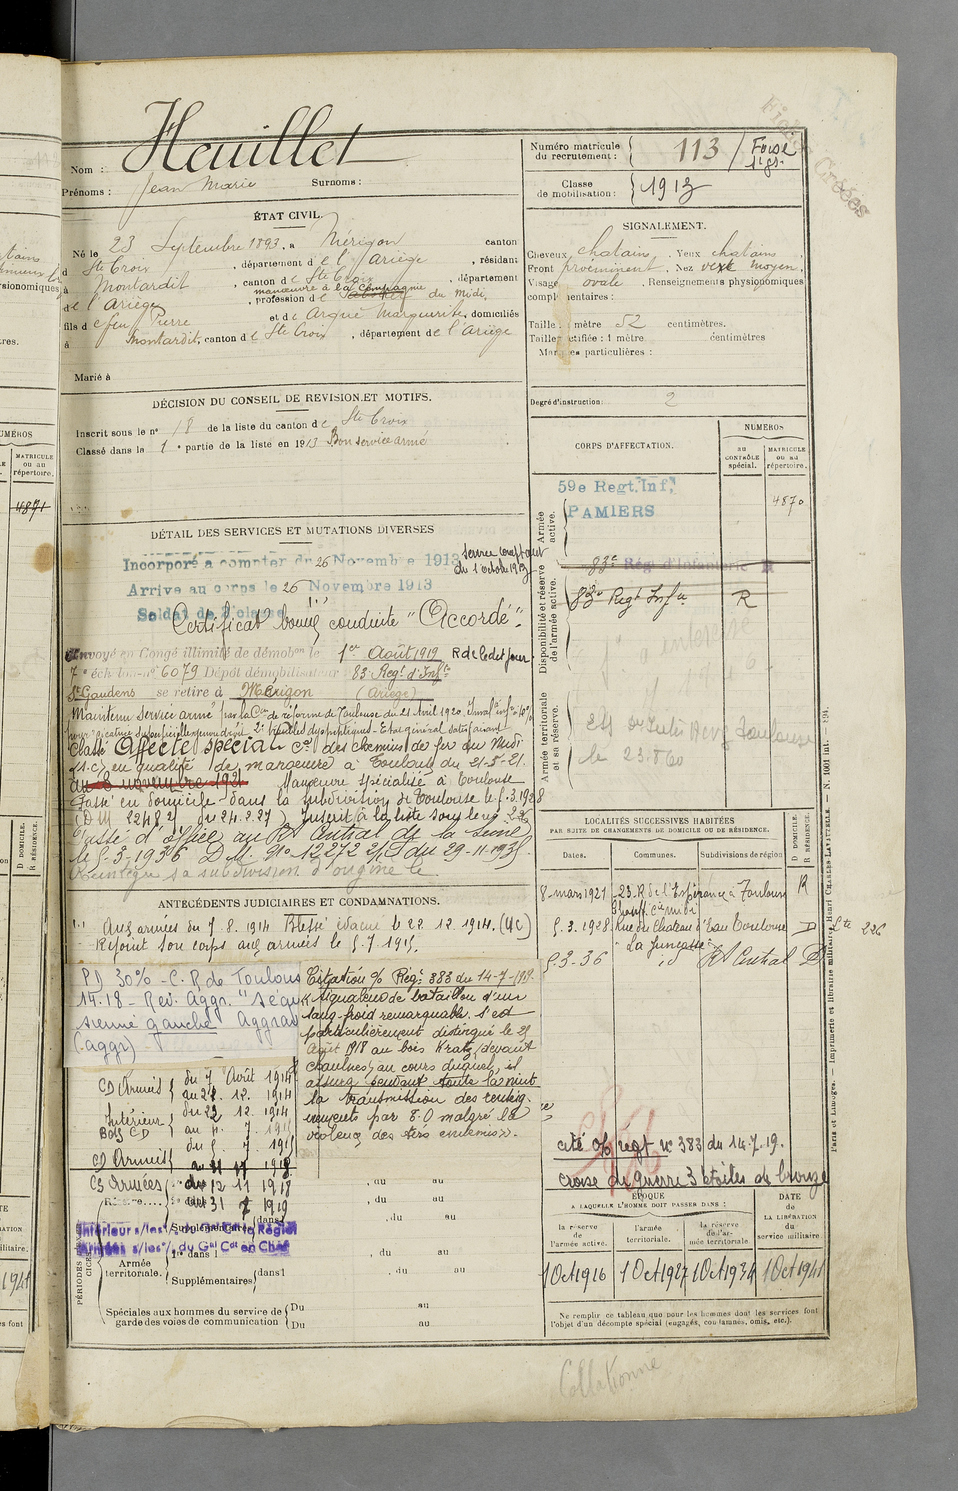 Nom : Heuillet
Prénoms : Jean Marie Surnoms :
Numéro matricule du recrutement : 113 / Foix
Classe de mobilisation : 1913
Fiches Créées
ÉTAT CIVIL.
Né le 23 Septembre 1893, à Mérigon canton
d Ste Croix, département de l'Ariège, résidant
à Montardit, canton de Ste Croix, département
manœuvre à la Compagnie
de l'Ariège, profession de du Midi,
fils de feu Pierre et de Argué Marguerite, domiciliés
à Montardit, canton de Ste Croix, département de l'Ariège
Marié à
SIGNALEMENT.
Cheveux chatains. Yeux chatains
Front proéminent. Nez moyen,
Visage ovale. Renseignements physionomiques
complémentaires :
Taille : 1 mètre 52 centimètres.
Taille rectifiée : 1 mètre centimètres
Marques particulières :
Degré d'instruction : 2
DÉCISION DU CONSEIL DE REVISION ET MOTIFS.
Inscrit sous le n° 18 de la liste du canton de Ste Croix
Classé dans la 1e partie de la liste en 1913 Bon service armé
CORPS D'AFFECTATION.
NUMÉROS
au CONTRÔLE spécial.
MATRICULE ou au répertoire.
Armée active.
59e Regt. Inf,
PAMIERS
4870
Disponibilité et réserve de l'armée active.
83e Rég d'Infanterie R
83e Regt Infie R
Armée territoriale et sa réserve.
le 23.8 60
DÉTAIL DES SERVICES ET MUTATIONS DIVERSES
Incorporé à compter du 26 Novembre 1913
Service comptant du 1 octobre 1913
Arrive au corps le 26 Novembre 1913
Soldat de 2e classe
Certificat bonne conduite "Accordé".
Envoyé en Congé illimité de démobon le 1er Août 1919 R de le dit jour.
7e échelon n° 6079 Dépôt démobilisateur : 83 Regt d'Infie
St Gaudens se retire à Mérigon (Ariège)
Maintenu service armé par la Con de réforme de Toulouse du 21 Avril 1920.
Classé Affecté spécial Cie des chemins de fer du Midi
(S.C) en qualité de manœuvre à Toulouse du 21-5-21.
du 8 novembre 1921 Manœuvre spécialisé à Toulouse
Passé en domicile dans la subdivision de Toulouse le 5.3.1928
(DM 22482 du 24.2.27) Inscrit à la liste sous le n° 226
Classé d'office au Rt Central de la Seine
le 5-3-1936 D.M. N° 12272 du 29-11-1935
Réintégré sa subdivision d'origine le
LOCALITÉS SUCCESSIVES HABITÉES
PAR SUITE DE CHANGEMENTS DE DOMICILE OU DE RÉSIDENCE.
Dates. Communes. Subdivisions de région
D DOMICILE. R RÉSIDENCE.
8 mars 1921 23. R de l'Espérance à Toulouse R
5.3.1928 Rue du Chateau d'Eau Toulouse D Lte 226
"La Juncasse"
5-3-36 Rt Central D
ANTÉCÉDENTS JUDICIAIRES ET CONDAMNATIONS.
Aux armées du 7.8.1914 Blessé évacué le 22.12.1914.
Rejoint son corps aux armées le 5.7.1915.
P.D 30% - C.R. de Toulouse
14-18 - Rev. Aggr.
gauche Aggrav
(aggr)
Citation O/ Reg. 383 du 14-7-19
Signaleur de bataillon d'un
sang froid remarquable. S'est
particulièrement distingué le 25
Août 1918 au bois Kratz (devant
Chaulnes) au cours duquel, il
assura pendant toute la nuit
la transmission des renseig-
nements par T.O malgré la
violence des tirs ennemis".
CD Armées du 7 Août 1914
au 22. 12. 1914
Intérieur du 22 12. 1914
Bds CD au 4. 7. 1915
CD Armées du 5. 7. 1915
au 11 11 1918
CS Armées du 12 11 1918
au 31 7 1919
cité O/ regt n° 383 du 14.7.19.
croix de guerre 3 étoiles de bronze
Intérieur s/les o/. du Gal Ct en Région
Armées s/les o/. du Gal Cdt en Chef
Supplémentaires dans l
Armée territoriale.
dans l
Supplémentaires dans l
Spéciales aux hommes du service de garde des voies de communication
Du au
Du au
ÉPOQUE
A LAQUELLE L'HOMME DOIT PASSER DANS :
la réserve de l'armée active.
l'armée territoriale.
la réserve de l'armée territoriale
DATE de LA LIBÉRATION du service militaire.
1 Oct 1916 1 Oct 1927 1 Oct 1934 1 Oct 1941
Ne remplir ce tableau que pour les hommes dont les services font
l'objet d'un décompte spécial (engagés, condamnés, omis, etc.).
Paris et Limoges. — Imprimerie et librairie militaires Henri CHARLES-LAVAUZELLE. — N. 1001 int.
Collationné